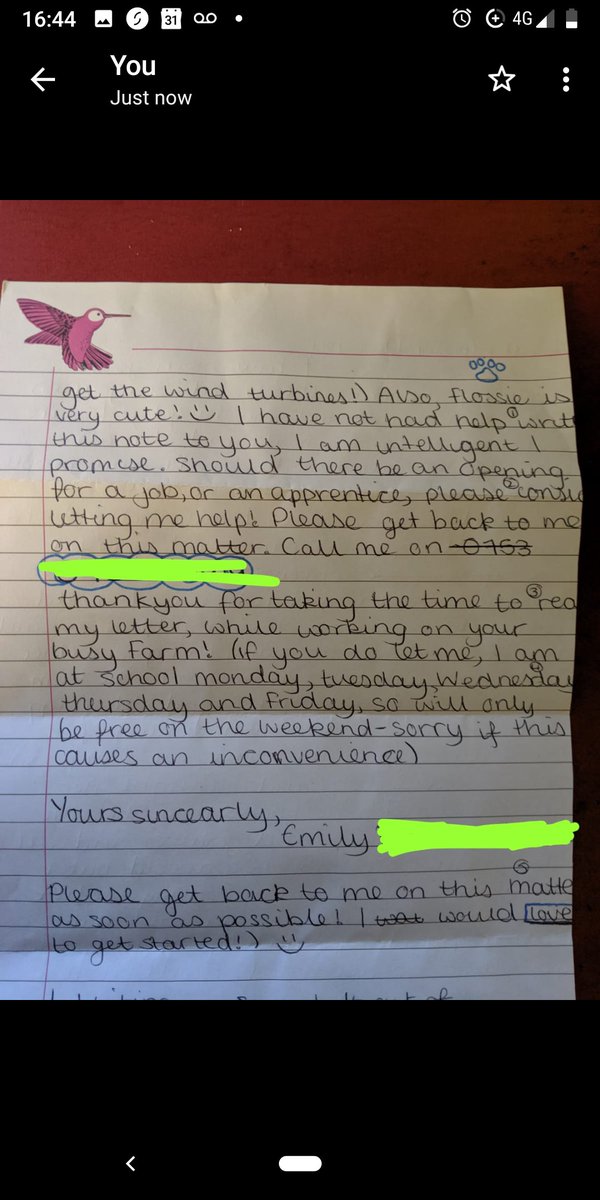 16:44
31
4G
You
Just now
get the wind turbines!) Also, flossie is
very cute! I have not had help ①
this note to you, I am intelligent I
promise. Should there be an opening
for a job, or an apprentice, please ②
letting me help! Please get back to me
on this matter. Call me on 0153
thankyou for taking the time to ③
my letter, while working on your
busy farm! (if you do let me, I am
at school monday, tuesday, Wednesday, ④
thursday and Friday, so will only
be free on the weekend-sorry if this
causes an inconvenience)
Yours sincearly,
Emily
⑤
Please get back to me on this
as soon as possible! I would love
to get started!)